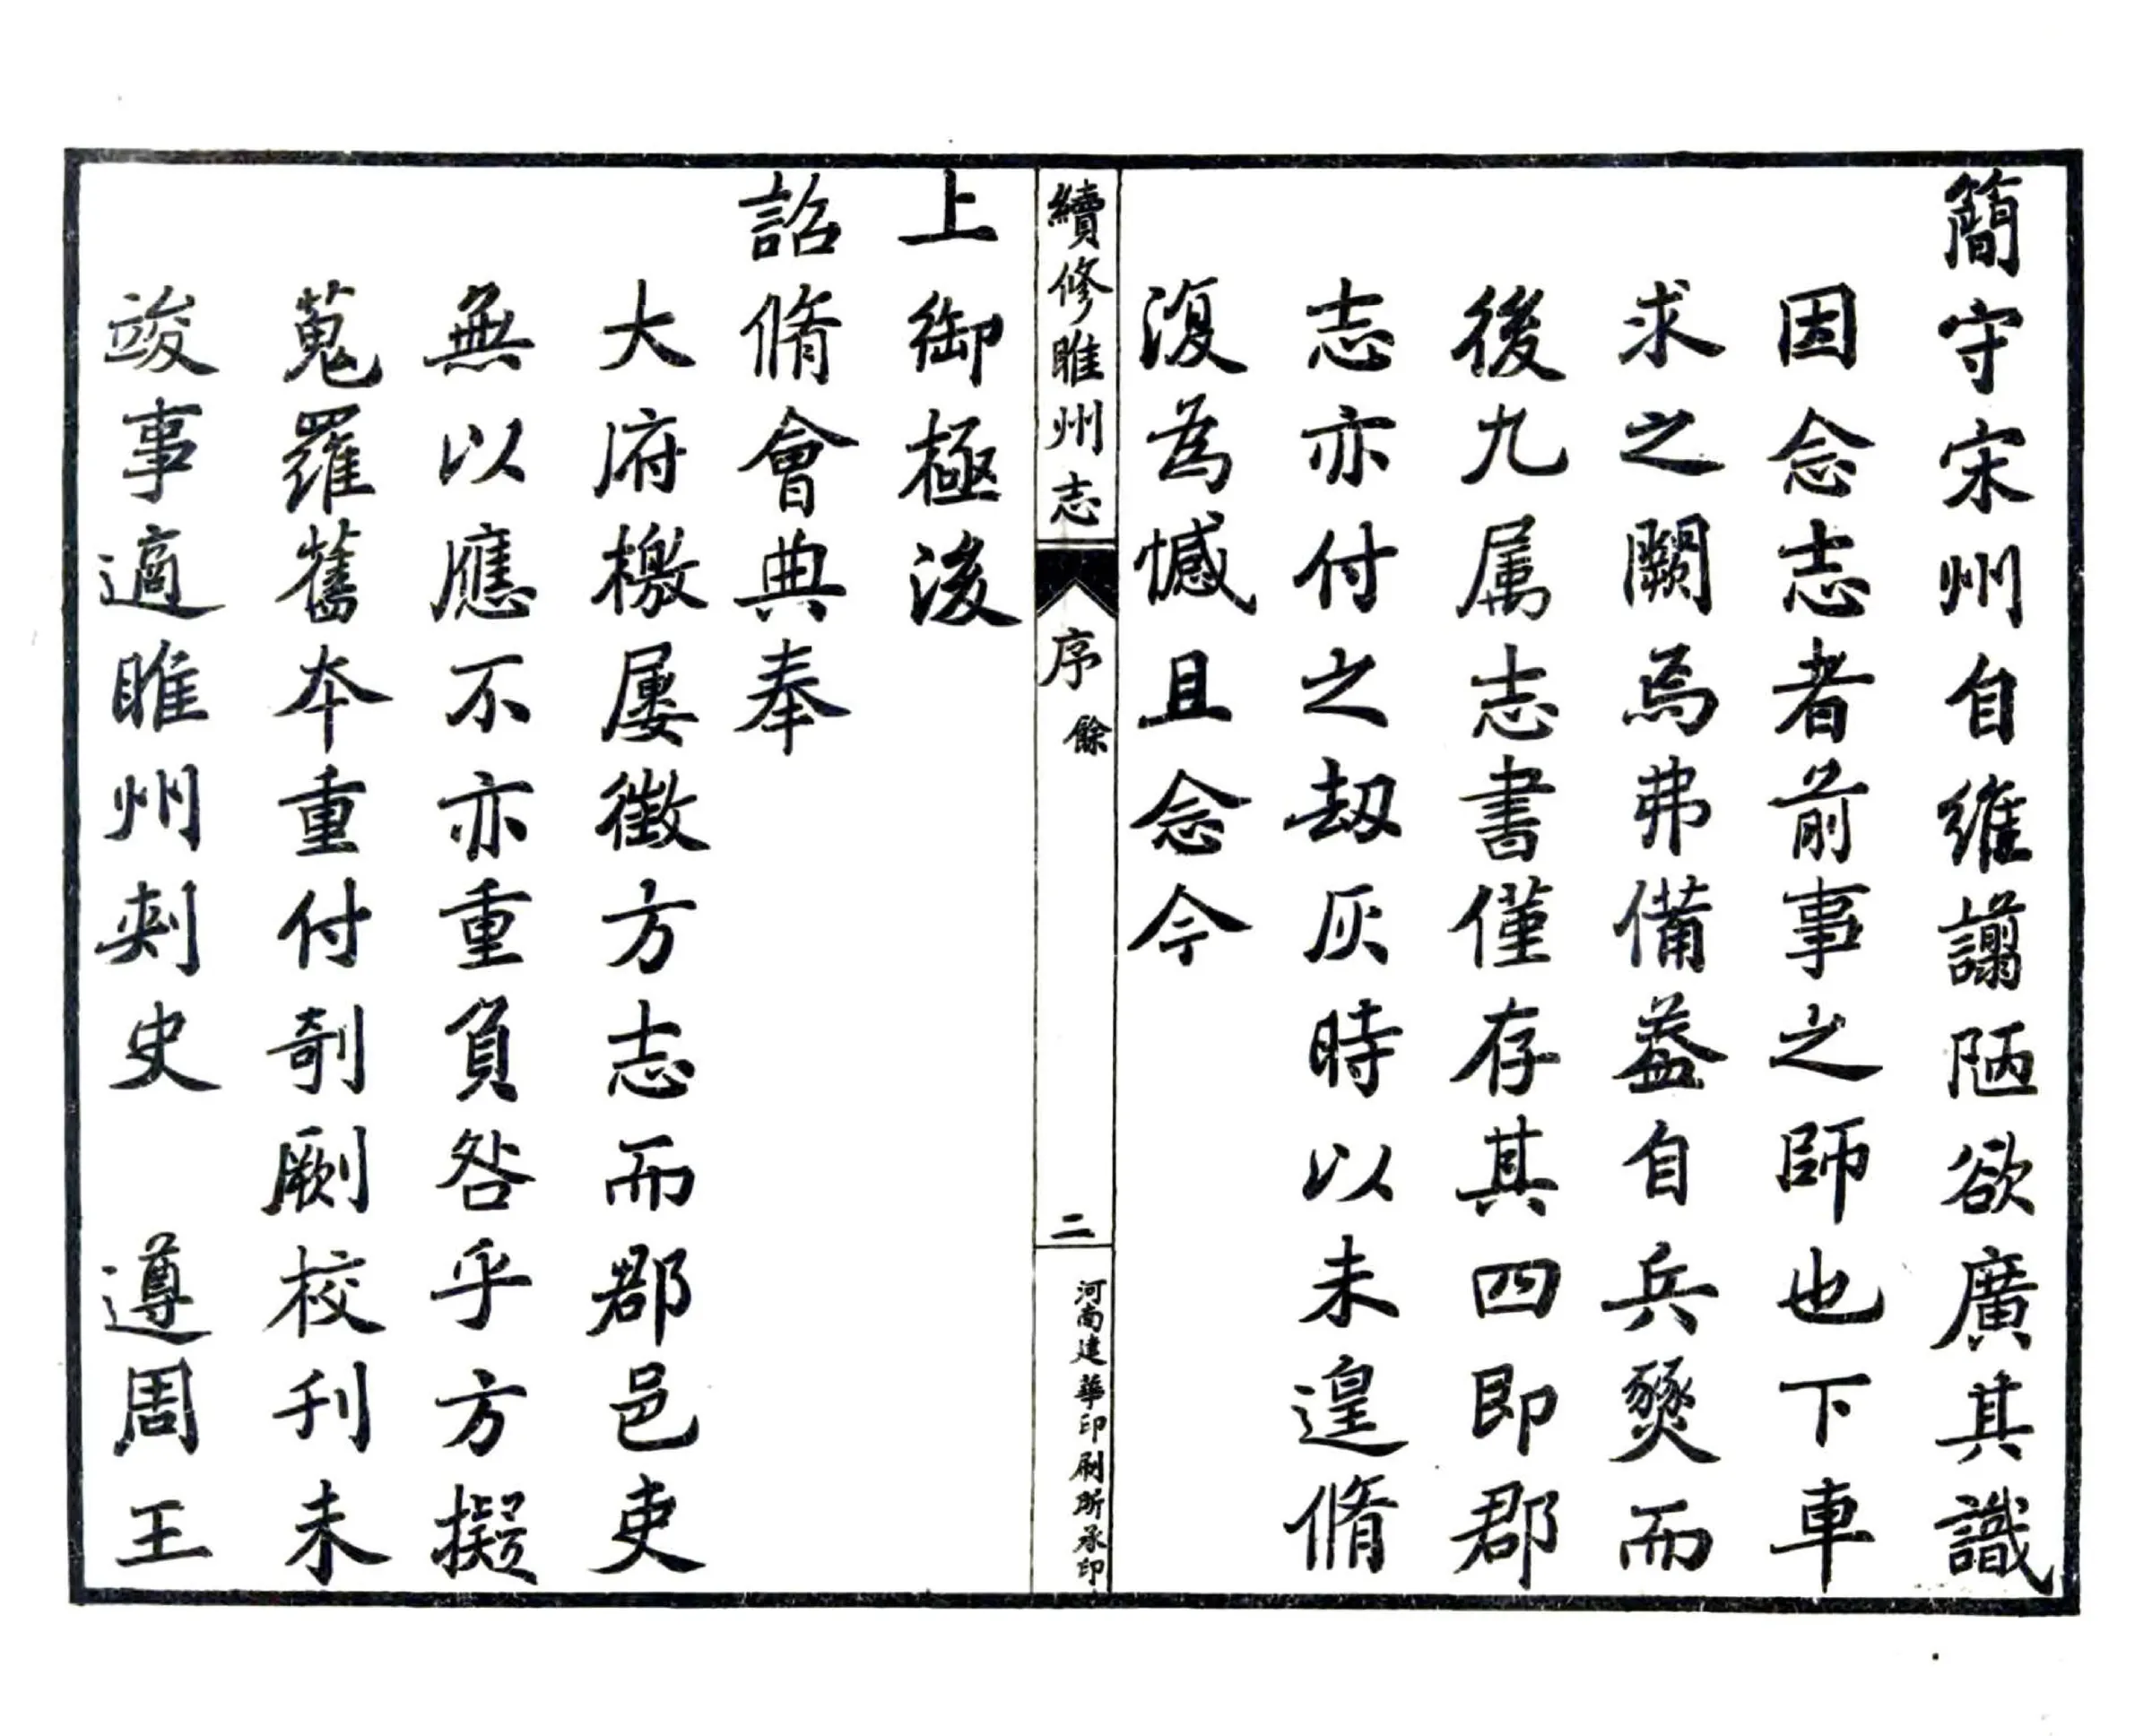 簡守宋州自維謭陋欲廣其識
因念志者前事之師也下車
求之闕焉弗備葢自兵燹而
後九属志書僅存其四即郡
志亦付之刼灰時以未遑脩
復為憾且念今
續修睢州志
序
餘
二
河南建華印刷所承印
上御極後
詔脩會典奉
大府檄屢徵方志而郡邑吏
無以應不亦重負咎乎方擬
蒐羅舊本重付剞劂校刊未
竣事適睢州刺史 遵周王